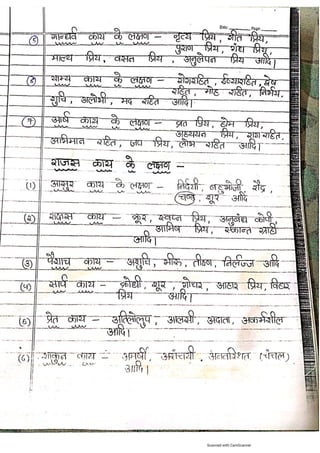 Date ______ Page ______
(5) गान्धर्व काय के लक्षण - नृत्य प्रिय, गीत प्रिय,
पुराण प्रिय, गंध प्रिय,
माल्य प्रिय, वसन प्रिय, अनुलेपन प्रिय आदि।
(6) याम्य काय के लक्षण - रोगरहित, ईर्ष्यारहित, द्वेष
रहित, मोह रहित, निर्भय,
शुचि, अलोभी, मद रहित आदि।
(7) आर्ष काय के लक्षण - व्रत प्रिय, होम प्रिय,
अध्ययन प्रिय, राग रहित,
अभिमान रहित, जप प्रिय, लोभ रहित आदि।
राजस काय के लक्षण -
(1) आसुर काय के लक्षण - निर्दयी, बहुभोजी रौद्र,
चण्ड, शूर आदि
(2) राक्षस काय - क्रूर, स्वप्न प्रिय, अनुबंध कोपी,
आमिष प्रिय, एकान्त ग्राही
आदि।
(3) पैशाच काय - अशुचि, भीरु, तीक्ष्ण, निर्लज्ज आदि
(4) सार्प काय - क्रोधी, शूर, गोचर, आहार प्रिय, विहार
प्रिय आदि।
(5) प्रेत काय - अतिलोलुप, आलसी, अदाता, अकर्मशील
आदि।
(6) शाकुन काय - अमर्षी, असंचयी, अनवस्थित (चंचल)
आदि।
Scanned with CamScanner